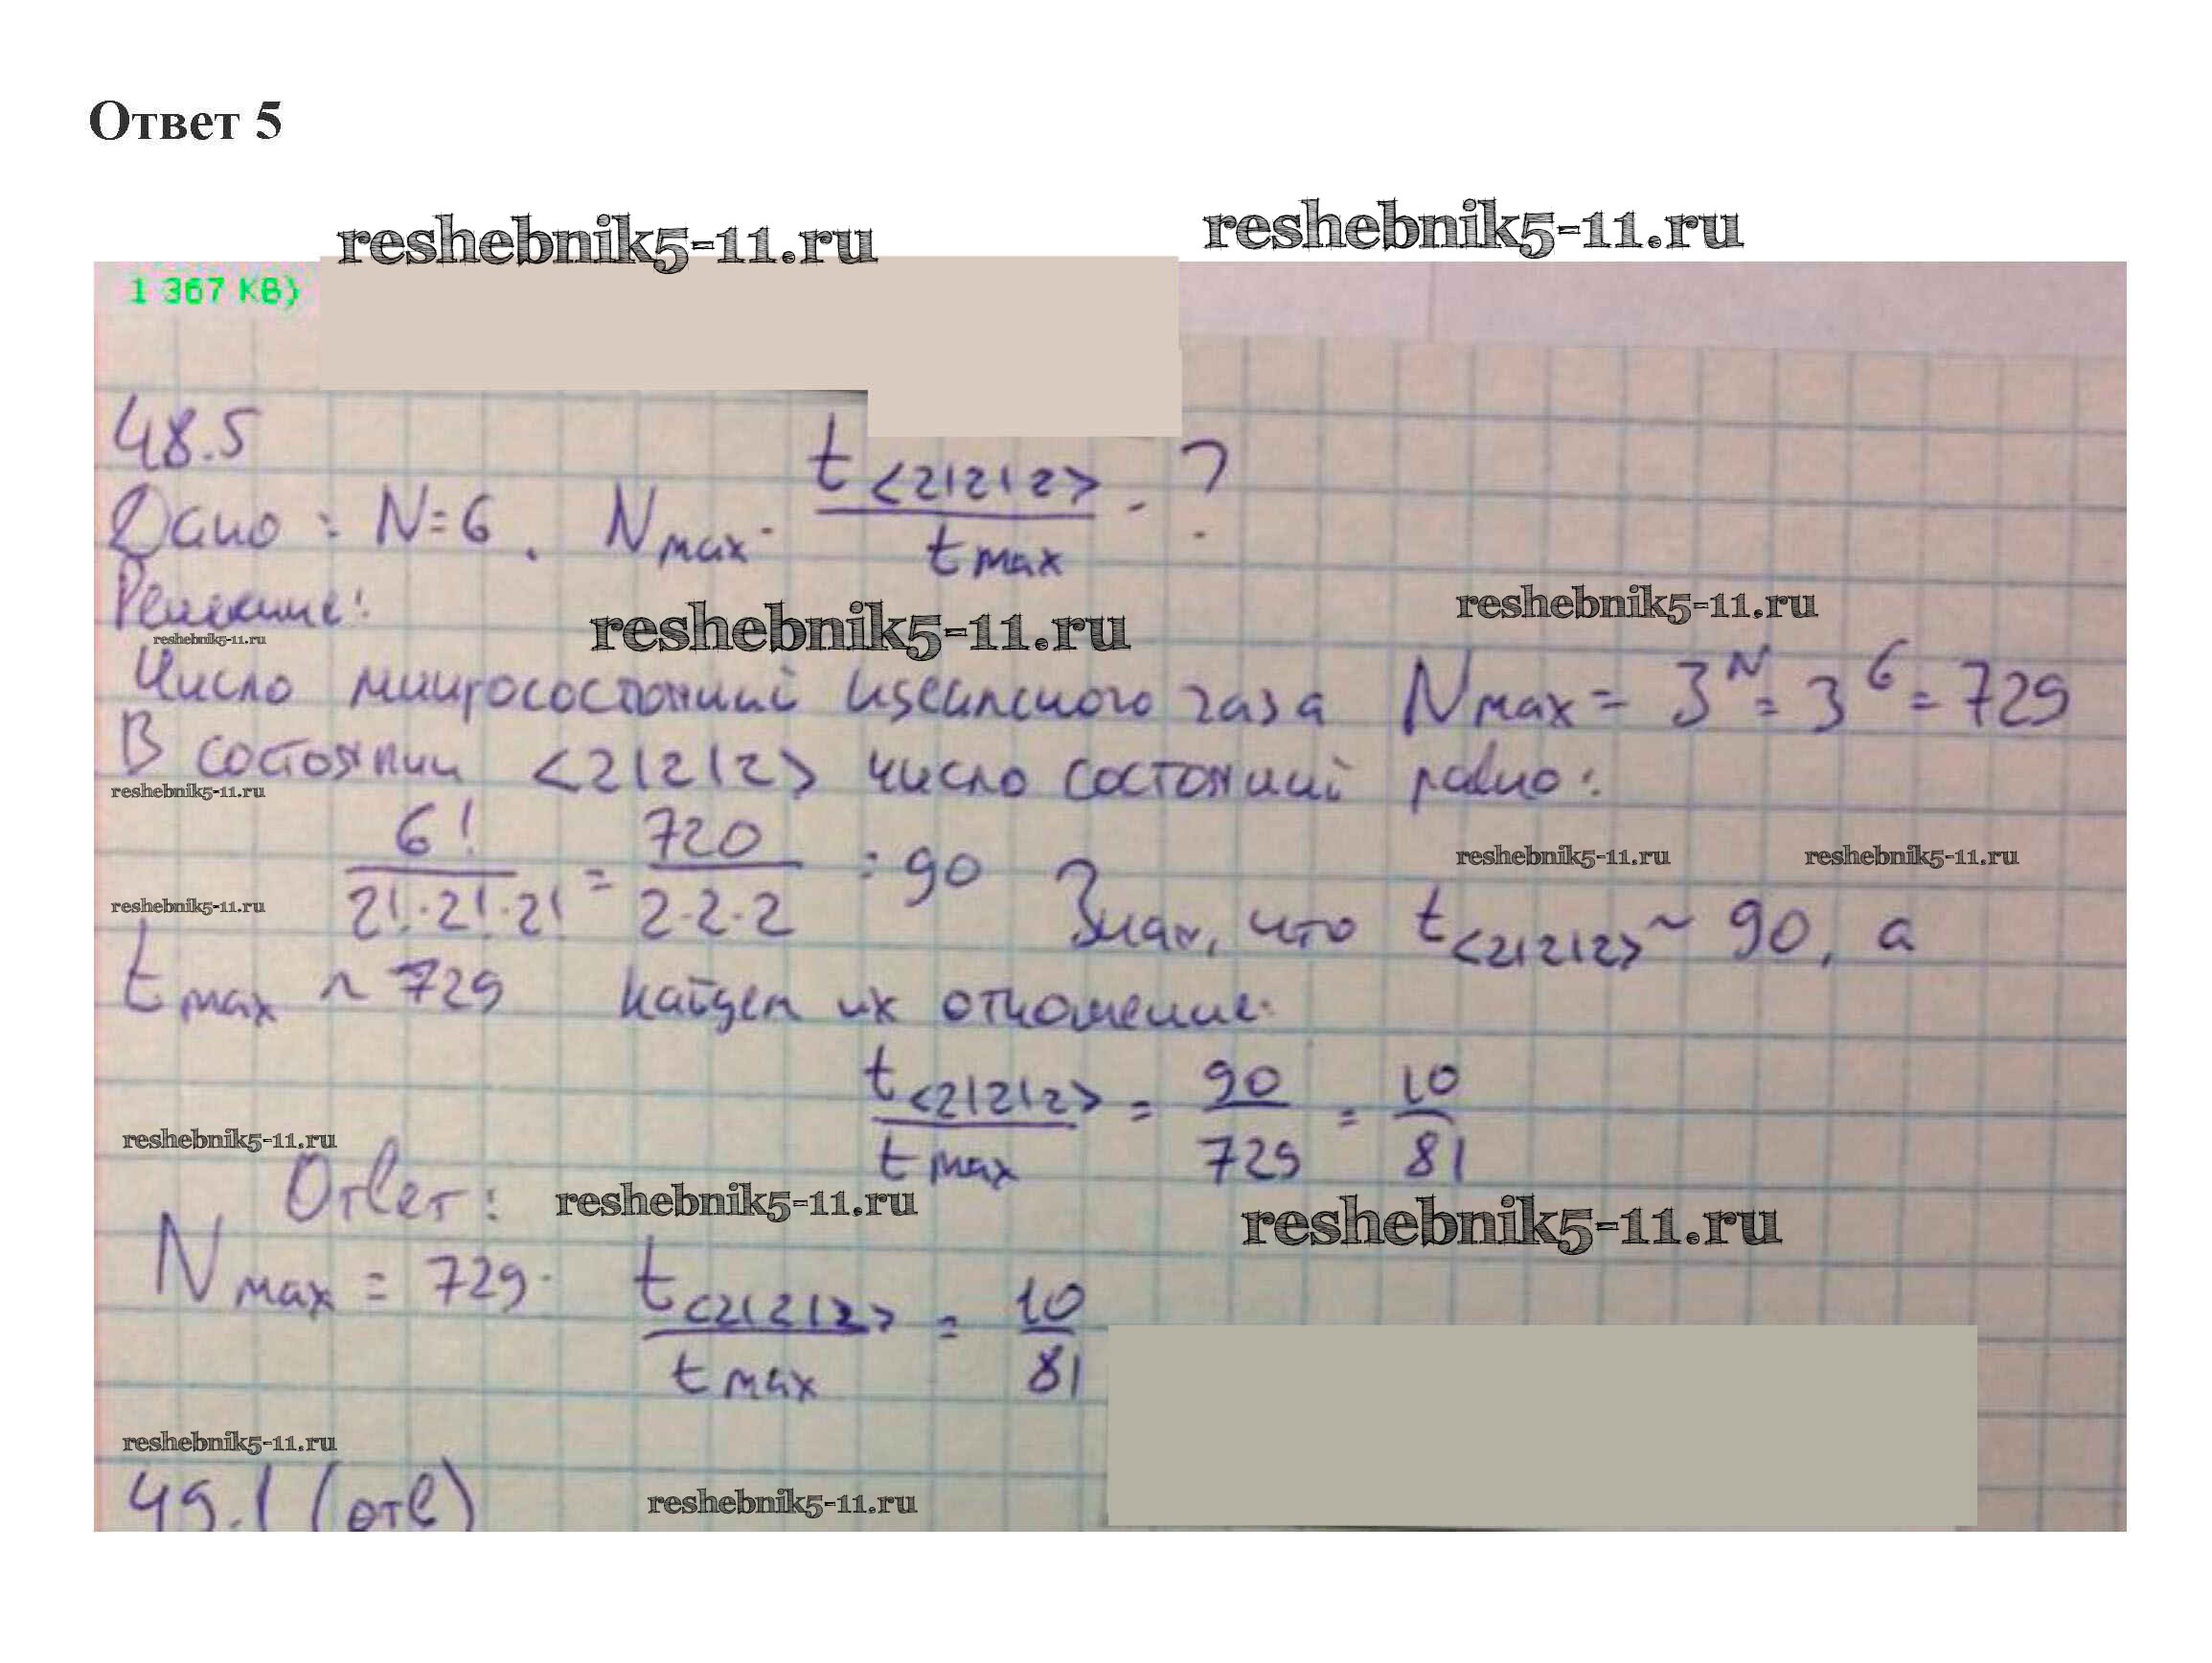 Ответ 5
reshebnik5-11.ru reshebnik5-11.ru
1 367 KB)
48.5
Дано: N=6. Nmax. t<2|2|2> / tmax - ?
Решение:
reshebnik5-11.ru reshebnik5-11.ru reshebnik5-11.ru
Число микросостояний идеального газа Nmax = 3^N = 3^6 = 729
В состоянии <2|2|2> число состояний равно:
reshebnik5-11.ru
6! / 2!·2!·2! = 720 / 2·2·2 = 90 Зная, что t<2|2|2> ~ 90, а
reshebnik5-11.ru reshebnik5-11.ru
reshebnik5-11.ru
tmax ~ 729 найдем их отношение:
t<2|2|2> / tmax = 90 / 729 = 10 / 81
reshebnik5-11.ru
Ответ:
reshebnik5-11.ru reshebnik5-11.ru
Nmax = 729. t<2|2|2> / tmax = 10 / 81
reshebnik5-11.ru
49.1 (отв)
reshebnik5-11.ru